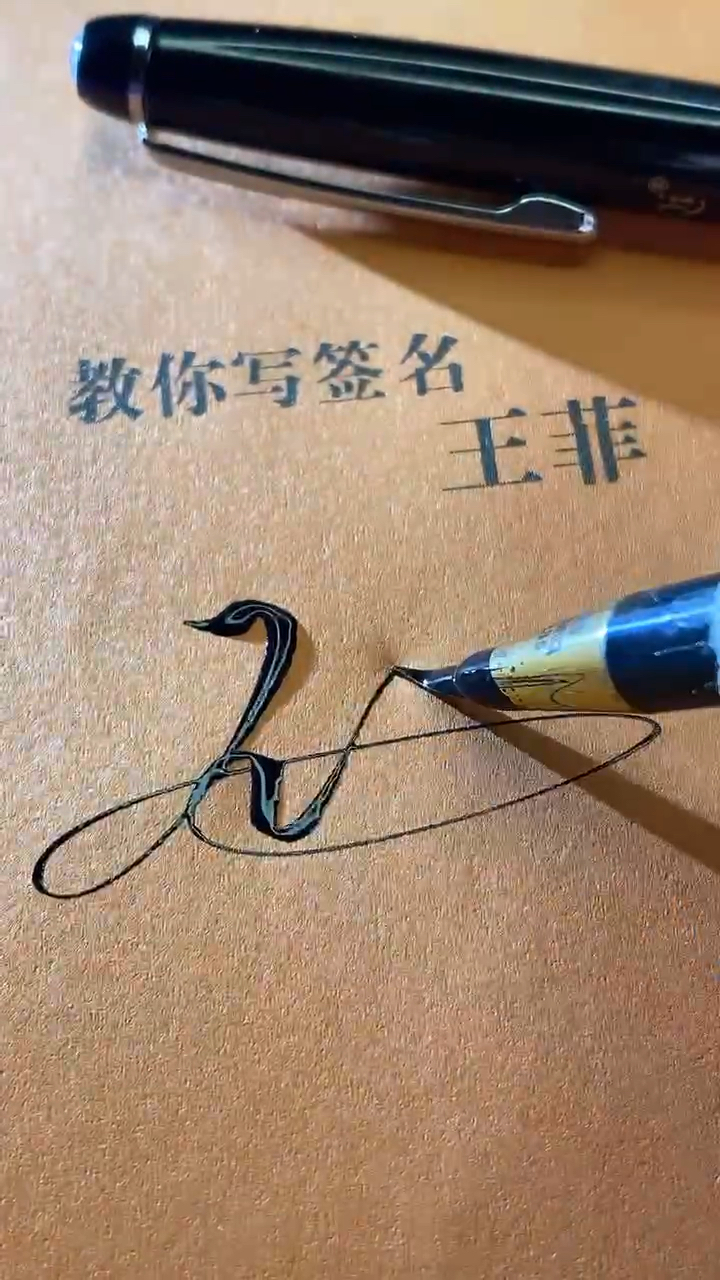 教你写签名
王菲